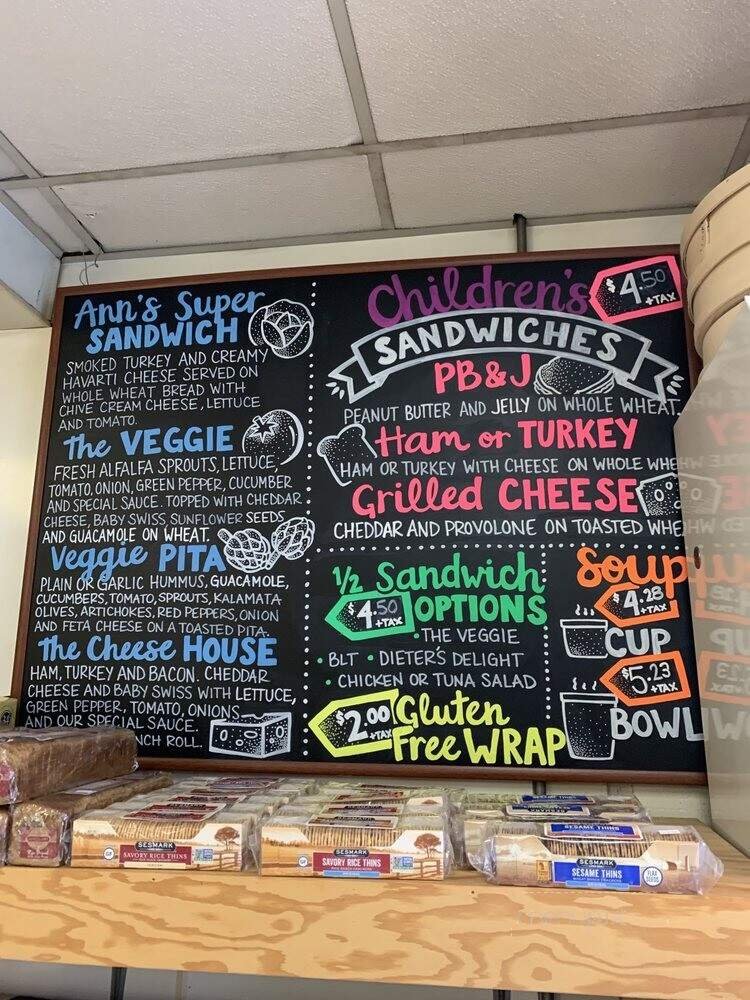 Ann's Super
SANDWICH
SMOKED TURKEY AND CREAMY
HAVARTI CHEESE SERVED ON
WHOLE WHEAT BREAD WITH
CHIVE CREAM CHEESE, LETTUCE
AND TOMATO.
The VEGGIE
FRESH ALFALFA SPROUTS, LETTUCE,
TOMATO, ONION, GREEN PEPPER, CUCUMBER
AND SPECIAL SAUCE. TOPPED WITH CHEDDAR
CHEESE, BABY SWISS, SUNFLOWER SEEDS
AND GUACAMOLE ON WHEAT.
Veggie PITA
PLAIN OR GARLIC HUMMUS, GUACAMOLE,
CUCUMBERS, TOMATO, SPROUTS, KALAMATA
OLIVES, ARTICHOKES, RED PEPPERS, ONION
AND FETA CHEESE ON A TOASTED PITA.
The Cheese HOUSE
HAM, TURKEY AND BACON. CHEDDAR
CHEESE AND BABY SWISS WITH LETTUCE,
GREEN PEPPER, TOMATO, ONIONS
AND OUR SPECIAL SAUCE.
NCH ROLL.
Children's
$4.50
+TAX
SANDWICHES
PB&J
PEANUT BUTTER AND JELLY ON WHOLE WHEAT.
Ham or TURKEY
HAM OR TURKEY WITH CHEESE ON WHOLE WHE
Grilled CHEESE
CHEDDAR AND PROVOLONE ON TOASTED WHE
1/2 Sandwich
$4.50
+TAX
OPTIONS
• THE VEGGIE
• BLT • DIETER'S DELIGHT
• CHICKEN OR TUNA SALAD
$2.00
+TAX
Gluten
Free WRAP
Soup
$4.28
+TAX
CUP
$5.23
+TAX
BOWL
SESMARK
SAVORY RICE THINS
SESMARK
SAVORY RICE THINS
SESMARK
SESAME THINS